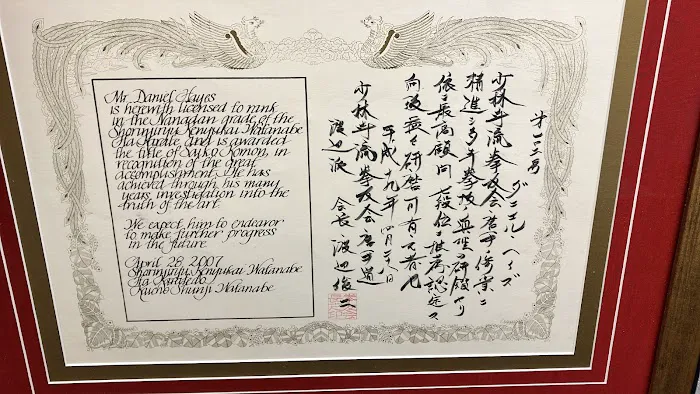 Mr. Daniel Hayes
is herewith licensed to rank
in the Nanadan grade of the
Shorinjiryu Kenyukai Watanabe
Ha Karate, and is awarded
the title of Saiko Komon, in
recognition of the great
accomplishment He has
achieved through his many
years investigation into the
truth of the art.
We expect him to endeavor
to make further progress
in the future
April 28, 2007
Shorinjiryu Kenyukai Watanabe
Ha Karatedo
Kaicho Shunji Watanabe
ダニエル・ヘイズ
少林寺流拳友会唐手修業ニ
精進シ多年拳技ノ真理ヲ研鑽セリ
最高顧問七段位ニ推薦認定ス
向後益々研磨可有之者也
平成十九年四月二十八日
少林寺流拳友会唐手道
渡辺派 会長 渡辺俊二